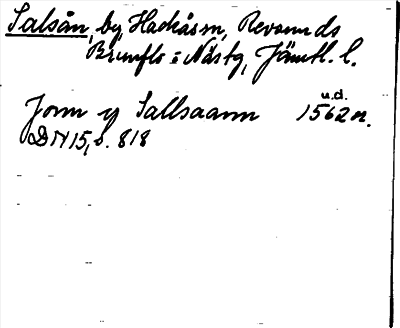 Salsån, by, Hackås sn, Revsunds
Brunflo o Näs tg, Jämtl. l.
u.d.
Jonn y Sallsaann 1562 n.
DN 15, s. 818